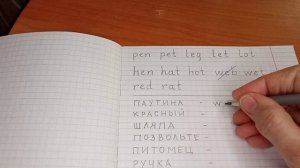 pen pet leg let lot
hen hat hot web wet
red rat
ПАУТИНА - w
КРАСНЫЙ -
ШЛЯПА -
ПОЗВОЛЬТЕ -
ПИТОМЕЦ -
РУЧКА